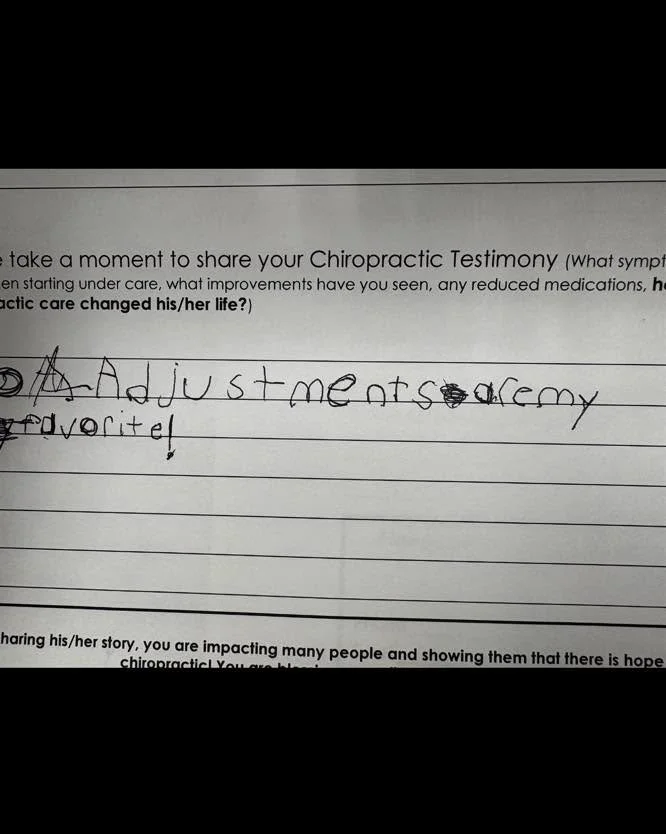 take a moment to share your Chiropractic Testimony (What sympt
en starting under care, what improvements have you seen, any reduced medications, h
actic care changed his/her life?)
Adjustments are my
favorite!
haring his/her story, you are impacting many people and showing them that there is hope
chiropractic! You are